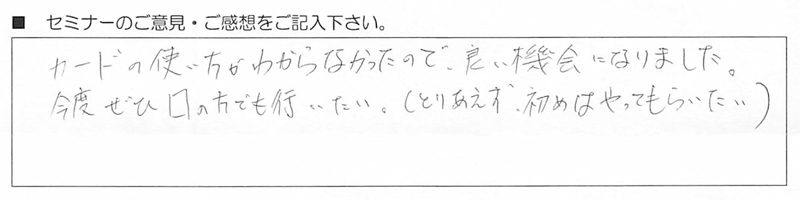 ■ セミナーのご意見・ご感想をご記入下さい。
カードの使い方がわからなかったので、良い機会になりました。
今度ぜひ口の方でも行いたい。(とりあえず、初めはやってもらいたい)